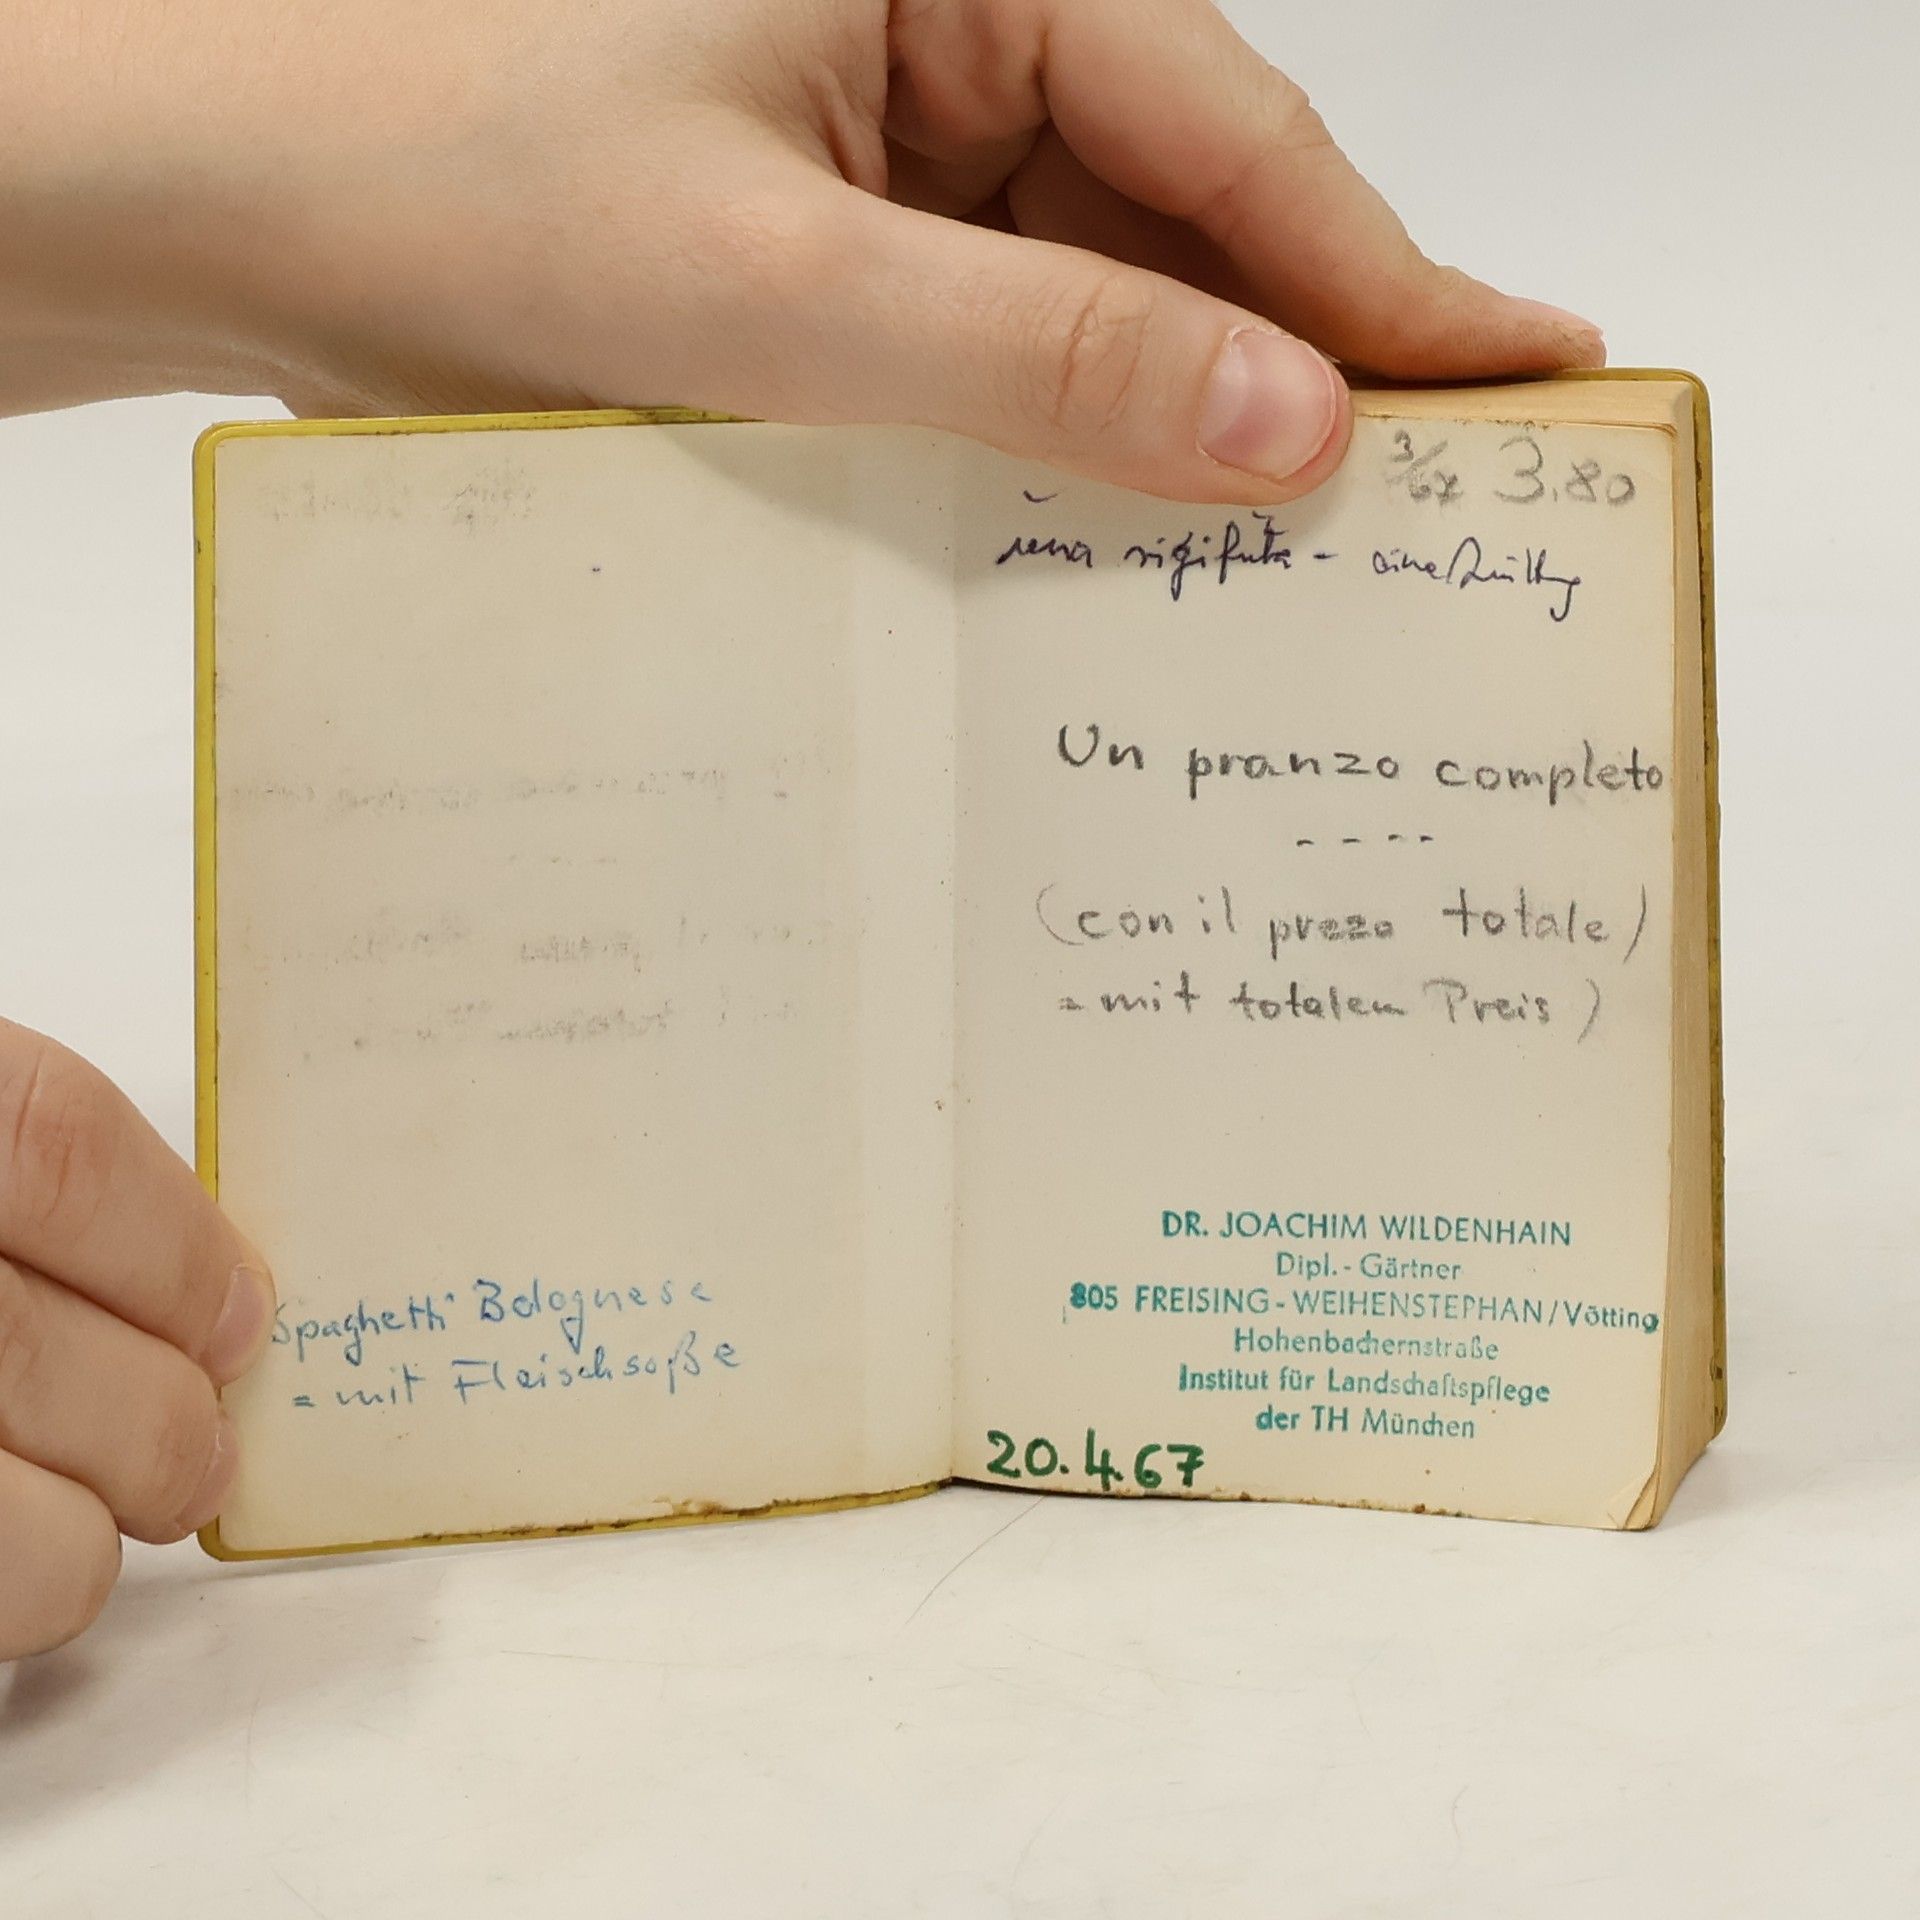 Spaghetti Bolognese
= mit Fleischsoße
3.80
una
Un pranzo completo
- - - -
(con il prezo totale)
= mit totalem Preis)
DR. JOACHIM WILDENHAIN
Dipl.-Gärtner
805 FREISING-WEIHENSTEPHAN/Vötting
Hohenbachernstraße
Institut für Landschaftspflege
der TH München
20.4.67